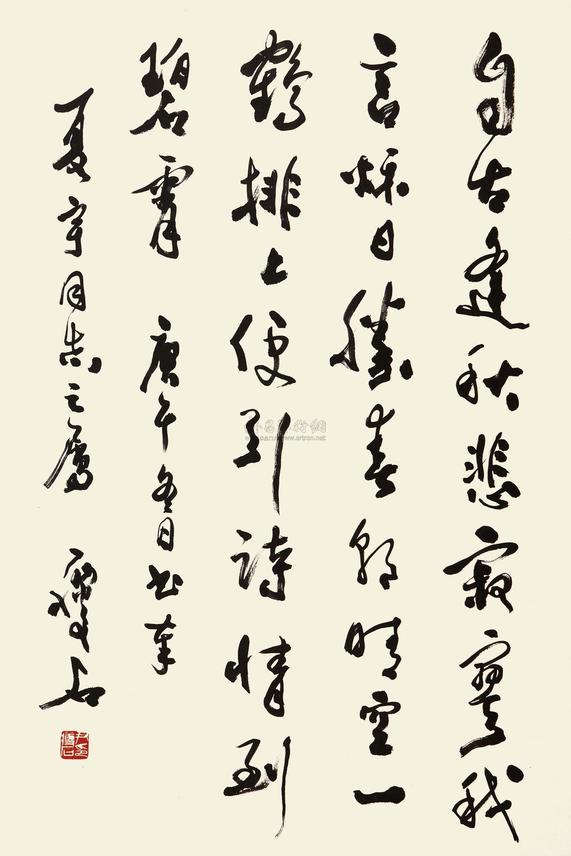 自古逢秋悲寂寥我
言秋日勝春朝晴空一
鶴排上便引詩情到
碧霄 庚午冬日书奉
夏宇同志之属 瘦石
www.artron.net